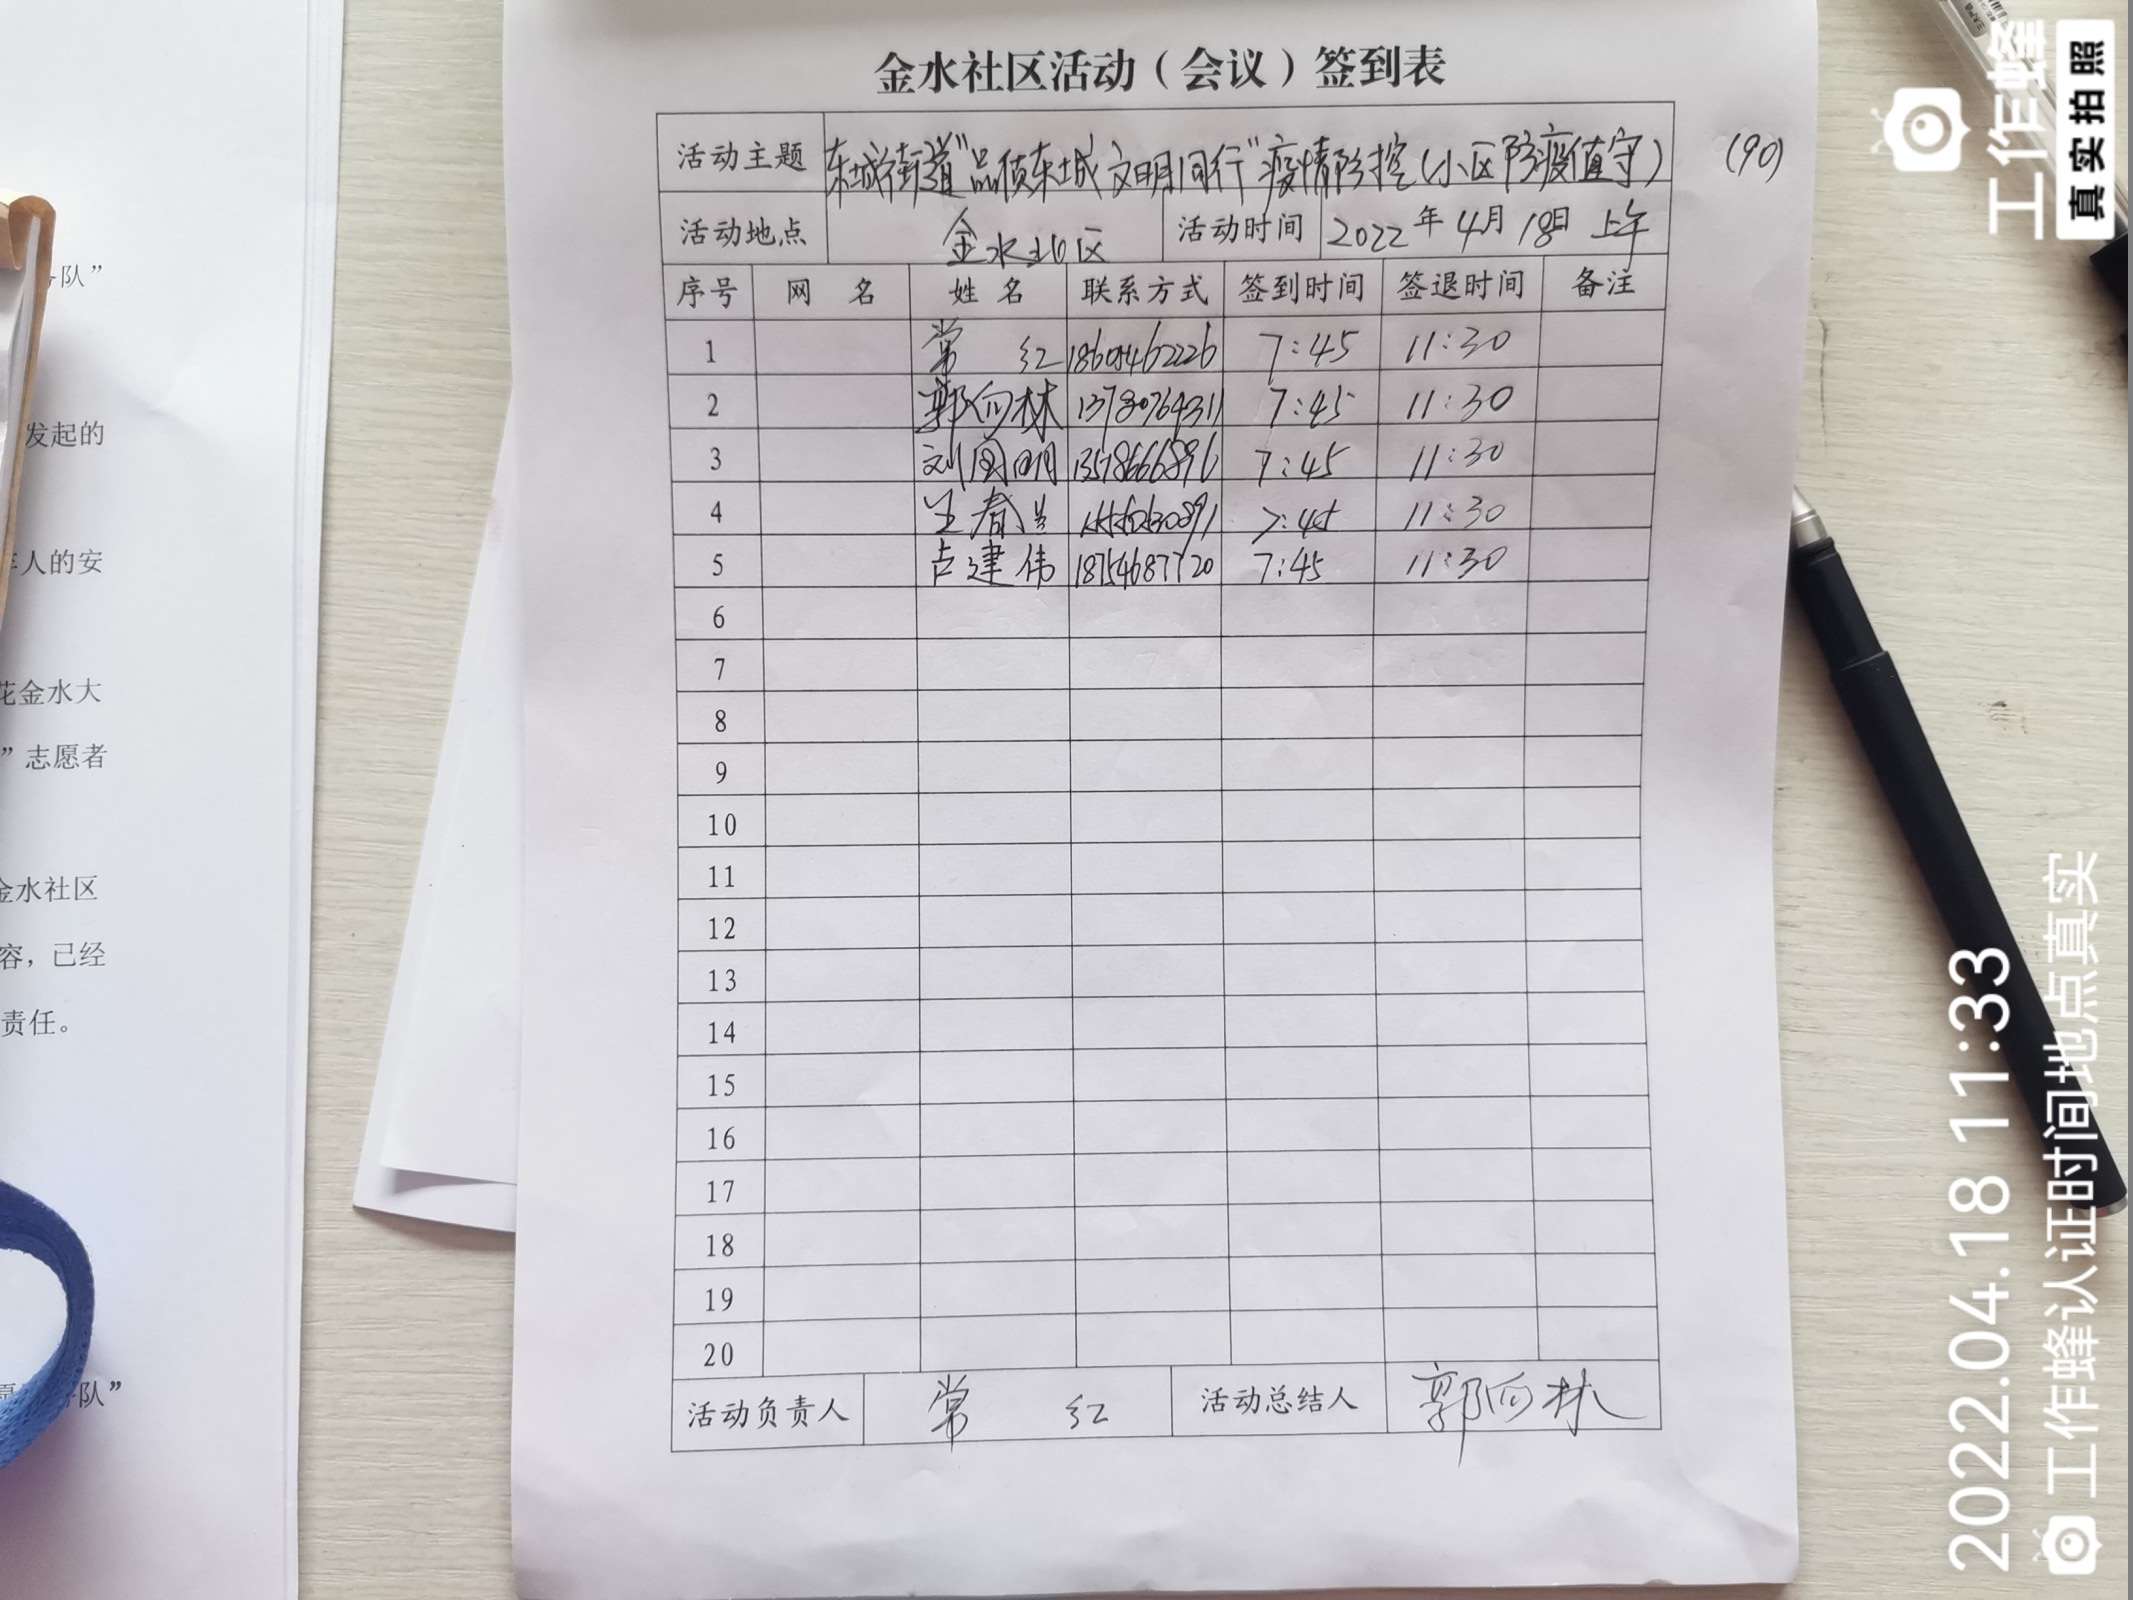 金水社区活动（会议）签到表
活动主题 东城街道“品质东城 文明同行”疫情防控(小区防疫值守) (90)
活动地点 金水社区 活动时间 2022年4月18日 上午
序号 网 名 姓 名 联系方式 签到时间 签退时间 备注
1 常 红 7:45 11:30
2 郭向林 13780764311 7:45 11:30
3 刘国明 7:45 11:30
4 春兰 7:45 11:30
5 卢建伟 18754687720 7:45 11:30
6
7
8
9
10
11
12
13
14
15
16
17
18
19
20
活动负责人 常 红 活动总结人 郭向林
队”
发起的
人的安
花金水大
”志愿者
金水社区
容，已经
责任。
队”
工作蜂
真实拍照
2022.04.18 11:33
工作蜂认证时间地点真实